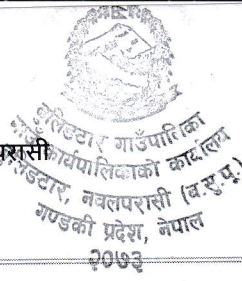 हुलिडटार गाउँपालिका
गाउँ कार्यपालिकाको कार्यालय
परासी
हुलिडटार, नवलपरासी (ब.सु.पू.)
गण्डकी प्रदेश, नेपाल
२०७३